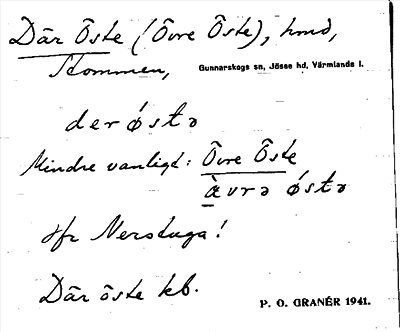 Där Öste (Övre Öste), hmd,
Stommen, Gunnarskogs sn, Jösse hd, Värmlands l.
der östə
Mindre vanligt: Övre Öste
àvrə östə
jfr Nerstuga!
Där öste kb.
P. O. GRANÉR 1941.